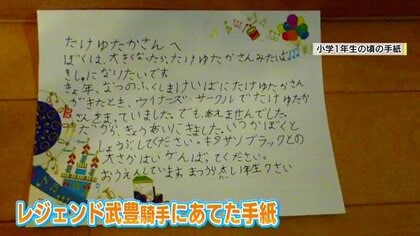 小学1年生の頃の手紙
たけゆたかさんへ
ぼくは、大きくなったら、たけゆたかさんみたいな
きしゅになりたいです
きょ年、なつのふくしまけいばにたけゆたかさん
がきたとき、ウイナーズ・サークルでたけゆたか
さんをまっていました。でも、あえませんでした。
だから、きょうあいにきました。いつかぼくと
しょうぶしてください。キタサンブラックとの
大さかはいがんばってください。
おうえんしています 1年生7さい
レジェンド武豊騎手にあてた手紙